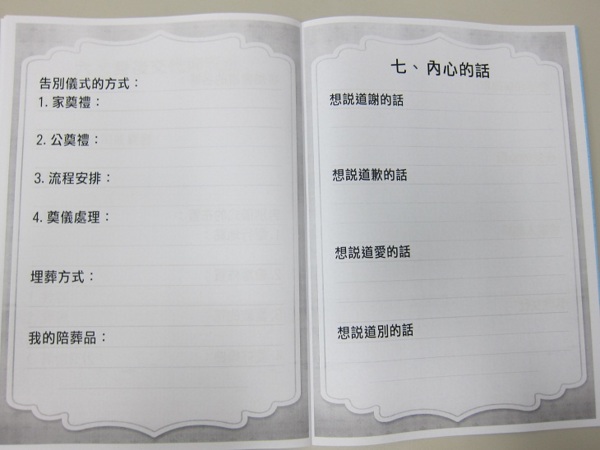 告別儀式的方式：
1. 家奠禮：
2. 公奠禮：
3. 流程安排：
4. 奠儀處理：
埋葬方式：
我的陪葬品：
七、內心的話
想說道謝的話
想說道歉的話
想說道愛的話
想說道別的話